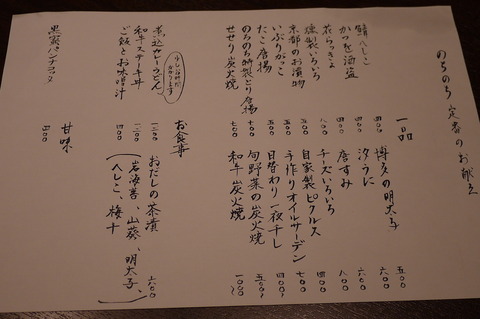 のちのち 定番のお献立
一品
博多の明太子 五〇〇
汐うに 六〇〇
唐すみ 八〇〇
チーズいろいろ 四〇〇
自家製ピクルス
手作りオイルサーデン 七〇〇
日替わり一夜干し 四〇〇〜
旬野菜の炭火焼 五〇〇〜
和牛炭火焼 一〇〇〇〜
鯖へしこ 四〇〇
かつを酒盗 四〇〇
花らっきょ
燻製いろいろ 八〇〇
京都のお漬物
いぶりがっこ 五〇〇
たこ唐揚 五〇〇
のちのち特製とり唐揚 七〇〇
せせり炭火焼 七〇〇
お食事
おだしの茶漬 六〇〇
(岩海苔、山葵、明太子、
へしこ、梅干)
少しお時間
かかります
煮込カレーうどん
和牛ステーキ丼
ご飯とお味噌汁 四〇〇
甘味
黒蜜パンナコッタ 四〇〇